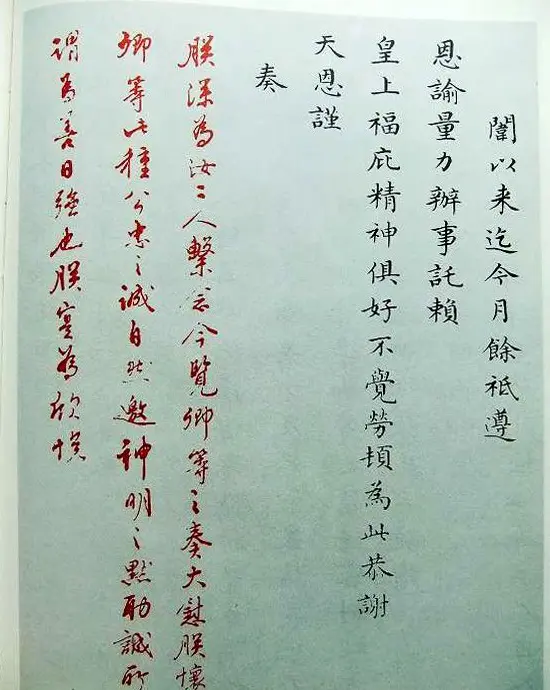 闈以来迄今月餘祗遵
恩諭量力辦事託賴
皇上福庇精神俱好不覺勞頓為此恭謝
天恩謹
奏
朕深為汝二人繫念今覽卿等之奏大慰朕懷
卿等此種公忠之誠自然邀神明之默助誠所
謂為善日強也朕實為欣悅